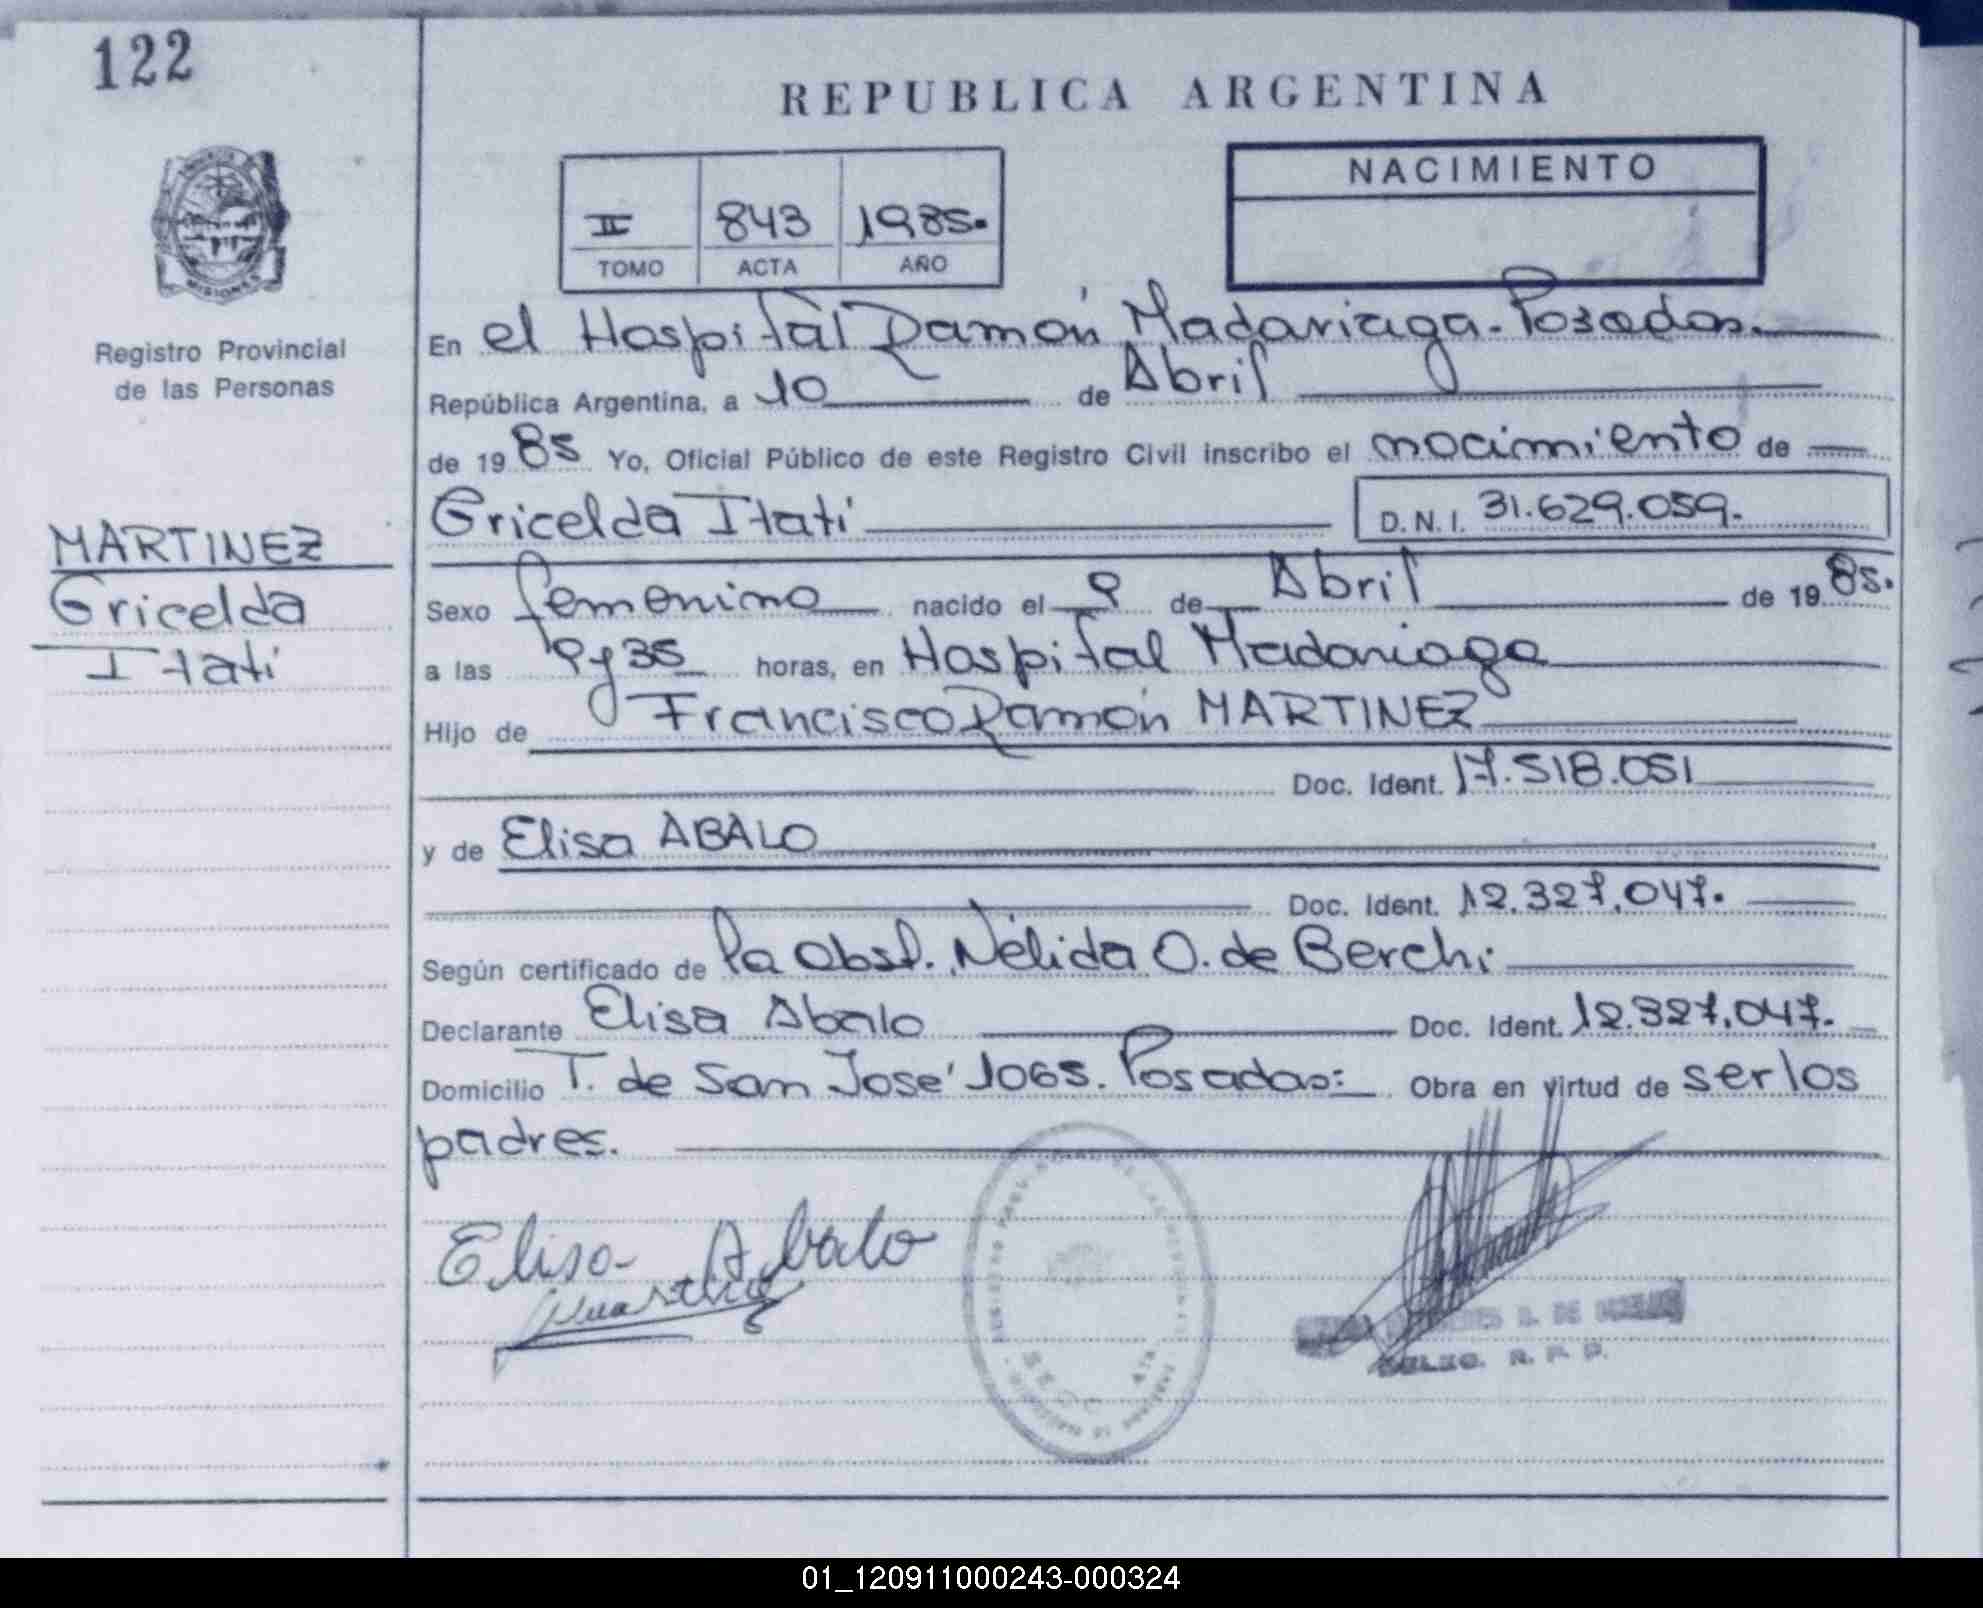 122
REPUBLICA ARGENTINA
NACIMIENTO
II 843 1985.
TOMO ACTA AÑO
MISIONES
Registro Provincial
de las Personas
MARTINEZ
Gricelda
Itatí
En el Hospital Ramón Madariaga - Posadas.
República Argentina, a 10 de Abril
de 19 85 Yo, Oficial Público de este Registro Civil inscribo el nacimiento de
Gricelda Itatí D.N.I. 31.629.059.
Sexo femenino nacido el 9 de Abril de 19 85.
a las 9 y 35 horas, en Hospital Madariaga
Hijo de Francisco Ramón MARTINEZ
Doc. Ident. 17.518.051
y de Elisa ABALO
Doc. Ident. 12.327.047.
Según certificado de la Obst. Nélida O. de Berchi
Declarante Elisa Abalo Doc. Ident. 12.327.047.
Domicilio T. de San José 1065. Posadas: Obra en virtud de ser los
padres.
Elisa Abalo
R. P. P.
01_120911000243-000324